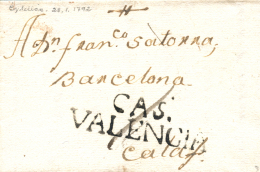 23, 1. 1792
A Dn. Franco. Satorra,
Barcelona.
CAS.
VALENCIA
Calaf